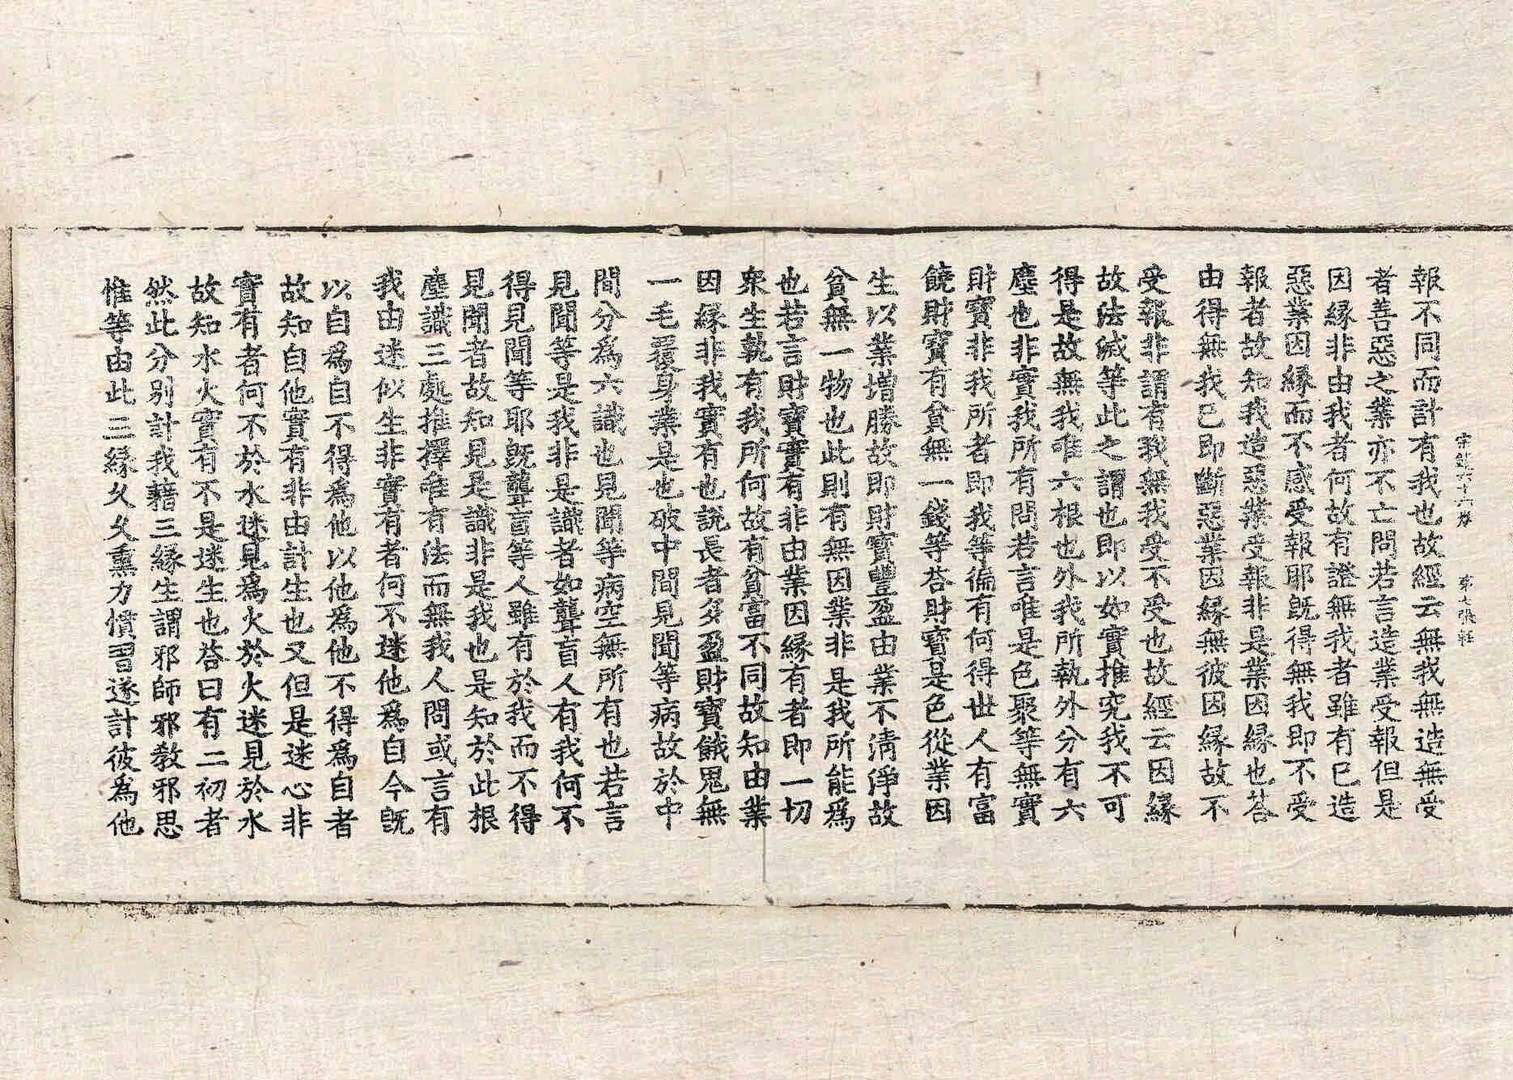 報不同而計有我也故經云無我無造無受
者善惡之業亦不亡問若言造業受報但是
因緣非由我者何故有證無我者雖有已造
惡業因緣而不感受報耶旣得無我即不受
報者故知我造惡業受報非是業因緣也荅
由得無我已即斷惡業因緣無彼因緣故不
受報非謂有我無我受不受也故經云因緣
故法滅等此之謂也即以如實推究我不可
得是故無我唯六根也外我所執外分有六
塵也非實我所有問若言唯是色聚等無實
財寶非我所者即我等徧有何得世人有富
饒財寶有貧無一錢等荅財寶是色從業因
生以業増勝故即財寶豐盈由業不清淨故
貧無一物也此則有無因業非是我所能爲
也若言財寶實有非由業因緣有者即一切
衆生執有我所何故有貧富不同故知由業
因緣非我實有也說長者多盈財寶餓鬼無
一毛覆身業是也破中間見聞等病故於中
間分爲六識也見聞等病空無所有也若言
見聞等是我非是識者如聾盲人有我何不
得見聞等耶旣聾盲等人雖有於我而不得
見聞者故知見是識非是我也是知於此根
塵識三處推擇唯有法而無我人問或言有
我由迷似生非實有者何不迷他爲自今旣
以自爲自不得爲他以他爲他不得爲自者
故知自他實有非由計生也又但是迷心非
實有者何不於水迷見爲火於火迷見於水
故知水火實有不是迷生也荅曰有二初者
然此分別計我籍三緣生謂邪師邪教邪思
惟等由此三緣久久熏力慣習遂計彼爲他
宗鏡六十六卷　第七張　軽